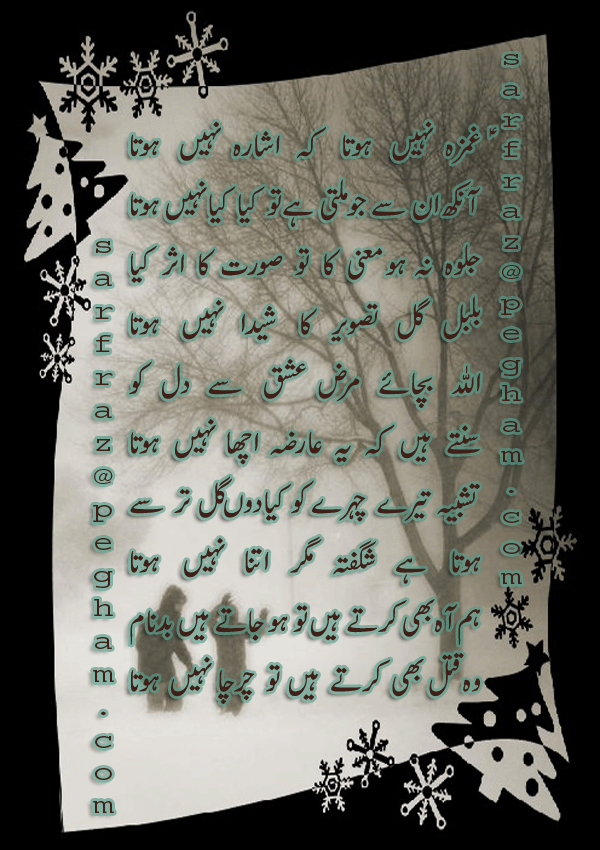 غمزہ نہیں ہوتا کہ اشارہ نہیں ہوتا
آنکھ ان سے جو ملتی ہے تو کیا کیا نہیں ہوتا
جلوہ نہ ہو معنی کا تو صورت کا اثر کیا
بلبل گل تصویر کا شیدا نہیں ہوتا
اللہ بچائے مرض عشق سے دل کو
سنتے ہیں کہ یہ عارضہ اچھا نہیں ہوتا
تشبیہ تیرے چہرے کو کیا دوں گل تر سے
ہوتا ہے شگفتہ مگر اتنا نہیں ہوتا
ہم آہ بھی کرتے ہیں تو ہو جاتے ہیں بدنام
وہ قتل بھی کرتے ہیں تو چرچا نہیں ہوتا
sarfraz@pegham.com
sarfraz@pegham.com